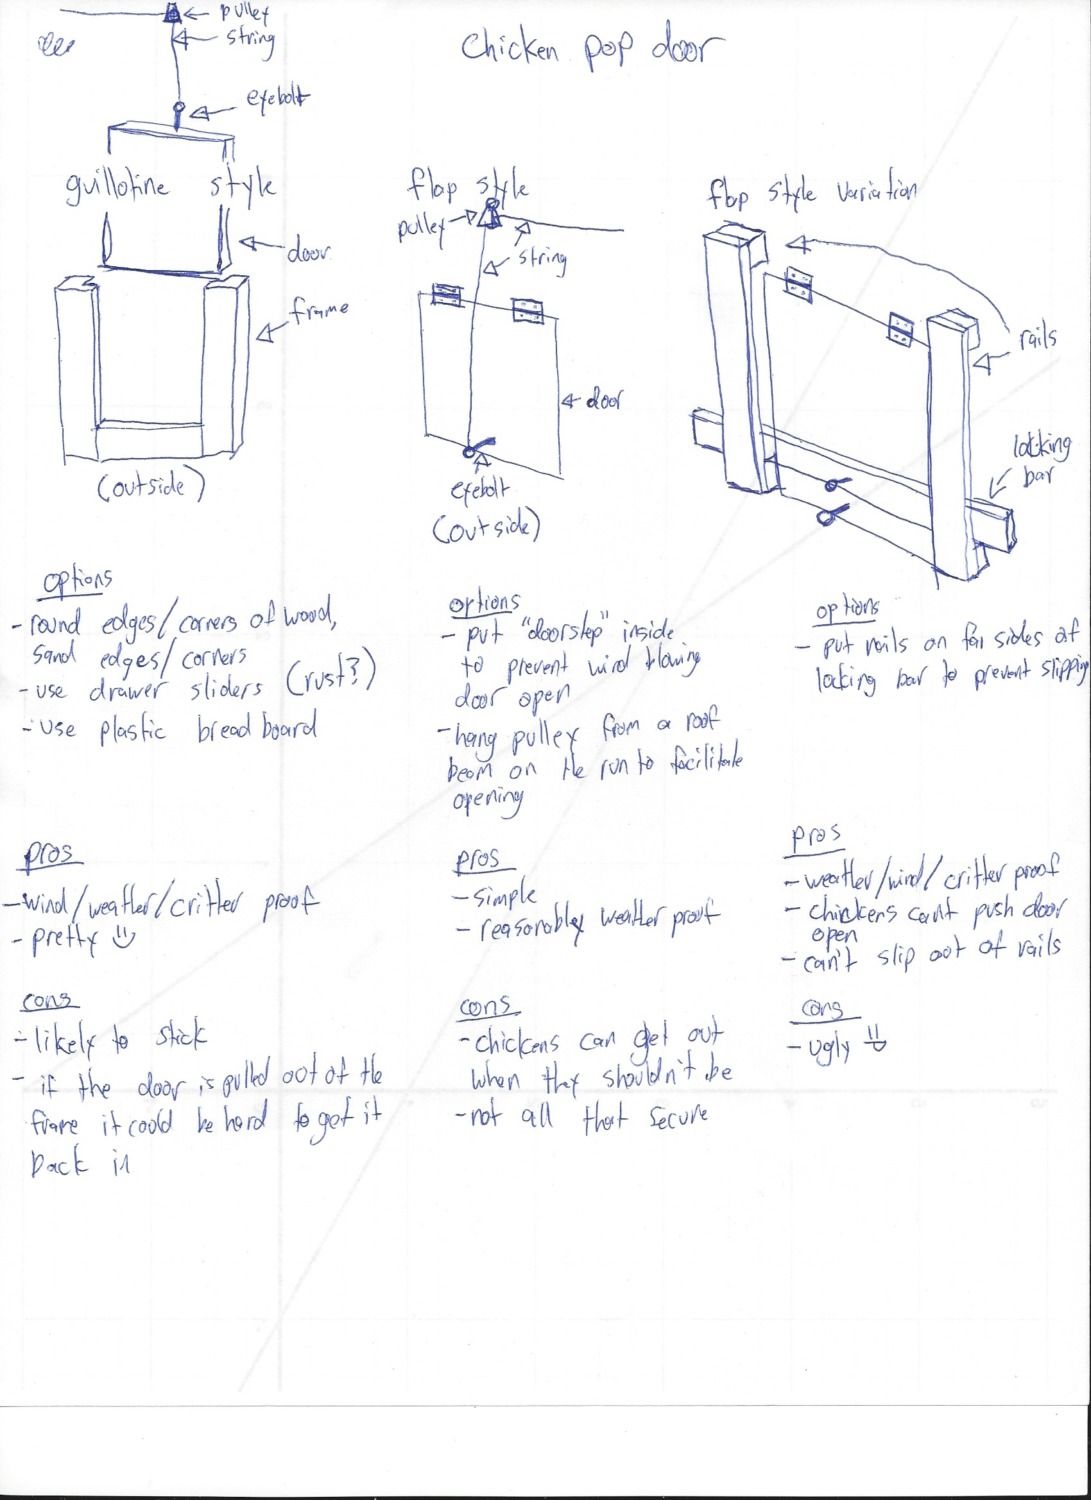 Chicken pop door
pulley
string
eyebolt
guillotine style
door
frame
(outside)
flap style
pulley
string
door
eyebolt
(outside)
flap style variation
rails
locking
bar
options
- round edges/corners of wood,
sand edges/corners
- use drawer sliders (rust?)
- use plastic breadboard
pros
- wind/weather/critter proof
- pretty
cons
- likely to stick
- if the door is pulled out of the
frame it could be hard to get it
back in
options
- put "doorstep" inside
to prevent wind blowing
door open
- hang pulley from a roof
beam on the run to facilitate
opening
pros
- simple
- reasonably weather proof
cons
- chickens can get out
when they shouldn't be
- not all that secure
options
- put rails on far sides of
locking bar to prevent slipping
pros
- weather/wind/critter proof
- chickens can't push door
open
- can't slip out of rails
cons
- ugly